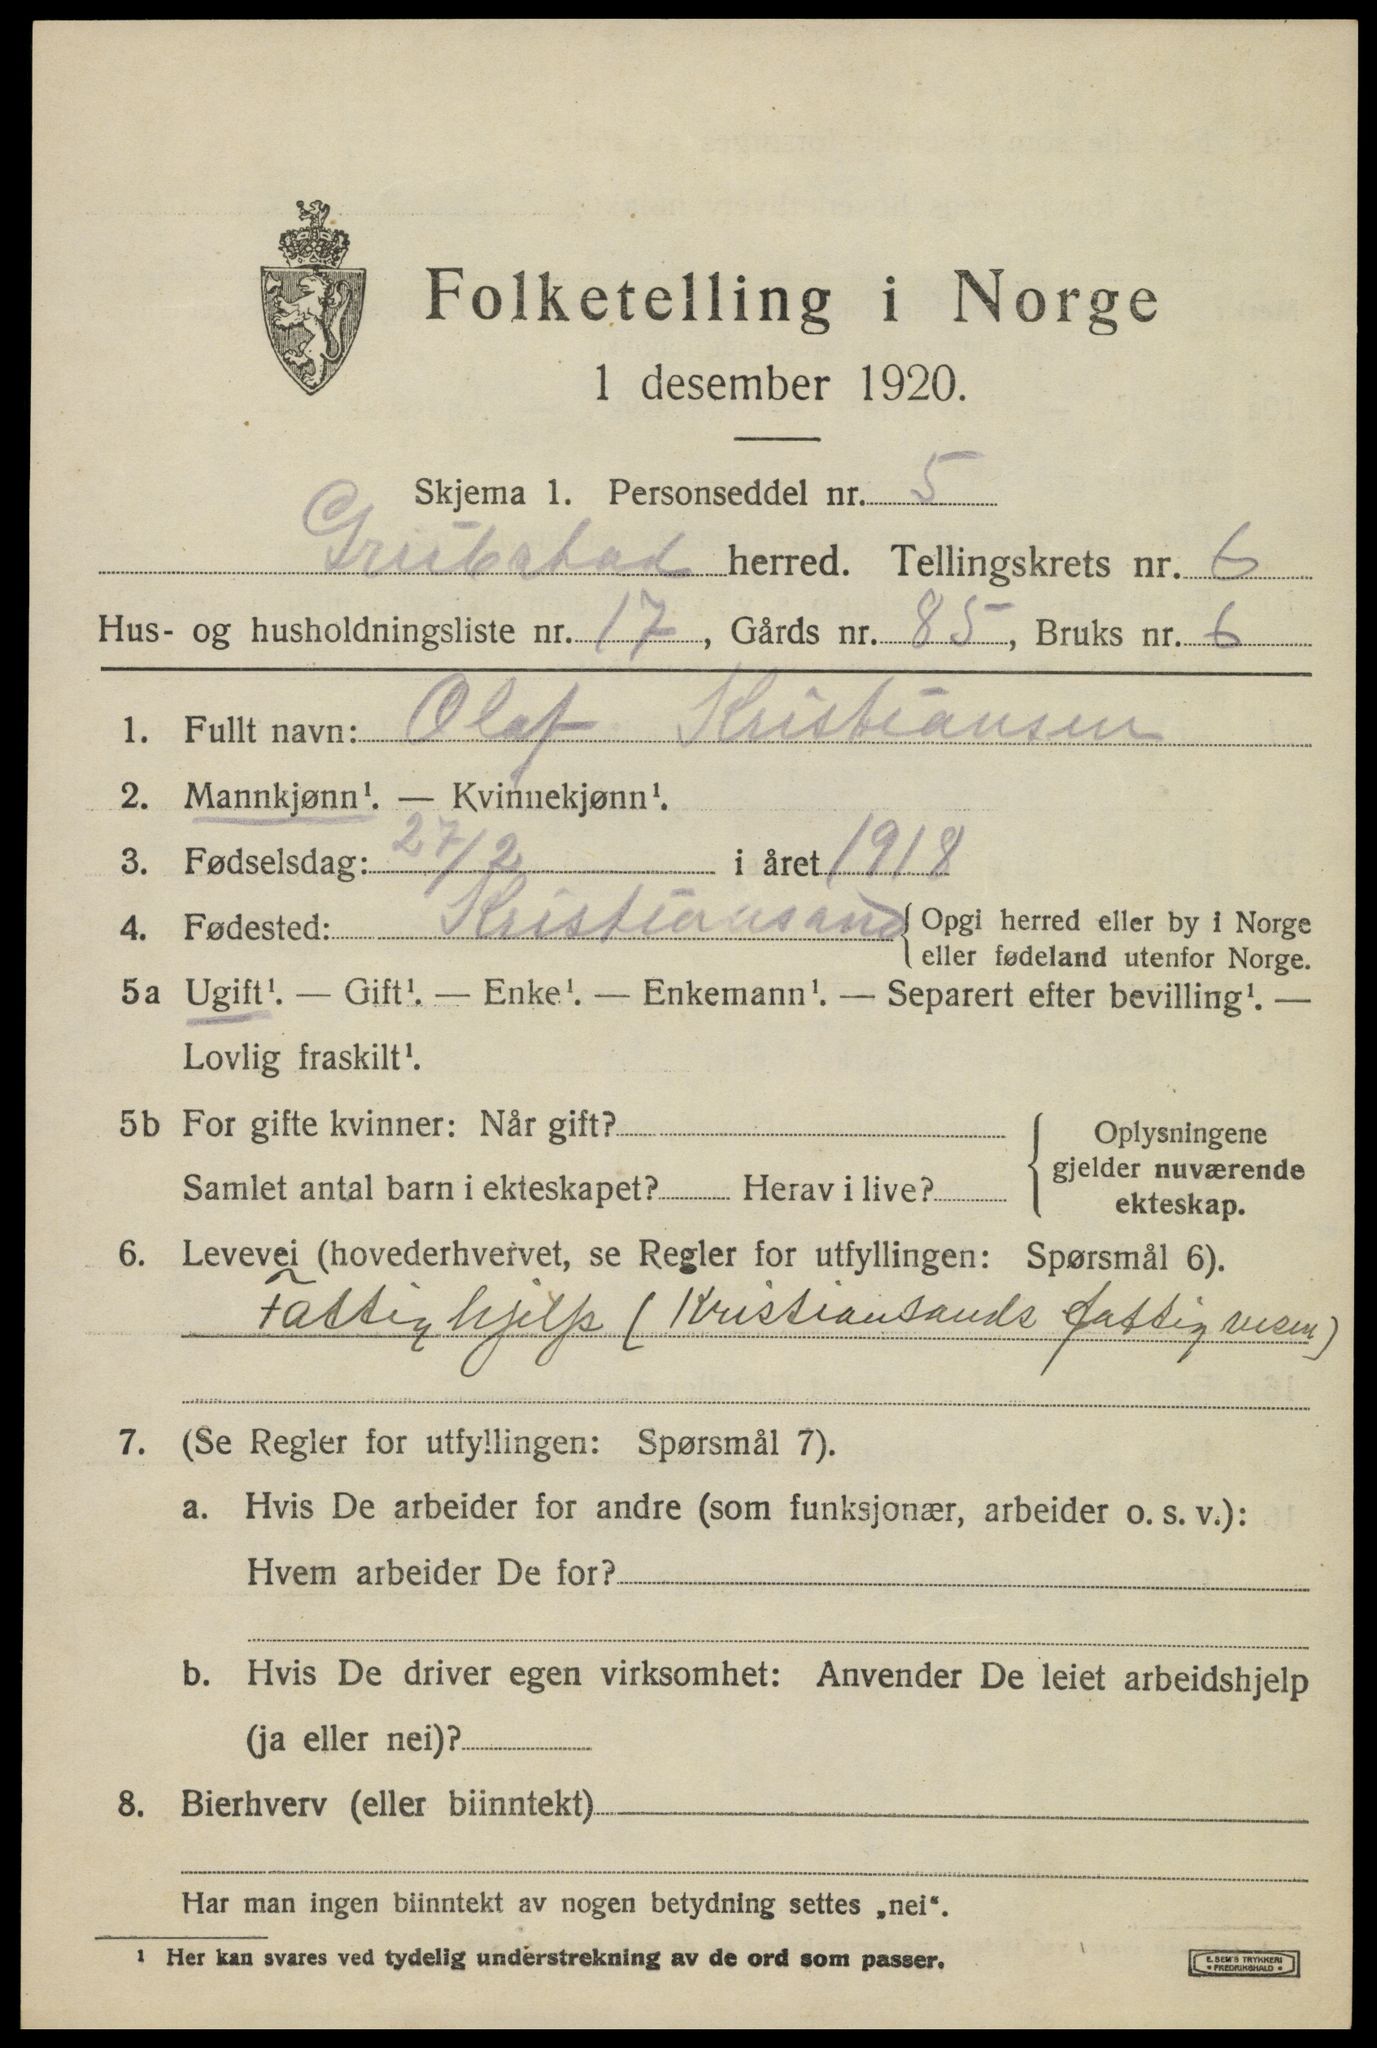 Folketelling i Norge
1 desember 1920.
Skjema 1. Personseddel nr. 5
herred. Tellingskrets nr. 6
Hus- og husholdningsliste nr. 17, Gårds nr. 85, Bruks nr. 6
1. Fullt navn: Olaf Kristiansen
2. Mannkjønn¹. — Kvinnekjønn¹.
3. Fødselsdag: 27/2 i året 1918
4. Fødested: Kristiansand { Opgi herred eller by i Norge
eller fødeland utenfor Norge.
5a Ugift¹. — Gift¹. — Enke¹. — Enkemann¹. — Separert efter bevilling¹. —
Lovlig fraskilt¹.
5b For gifte kvinner: Når gift?
Samlet antal barn i ekteskapet? Herav i live?
Oplysningene
gjelder nuværende
ekteskap.
6. Levevei (hovederhvervet, se Regler for utfyllingen: Spørsmål 6).
Fattighjelp (Kristiansands fattigvesen)
7. (Se Regler for utfyllingen: Spørsmål 7).
a. Hvis De arbeider for andre (som funksjonær, arbeider o. s. v.):
Hvem arbeider De for?
b. Hvis De driver egen virksomhet: Anvender De leiet arbeidshjelp
(ja eller nei)?
8. Bierhverv (eller biinntekt)
Har man ingen biinntekt av nogen betydning settes „nei“.
¹ Her kan svares ved tydelig understrekning av de ord som passer.
E. SEM'S TRYKKERI
• FREDRIKSHALD •